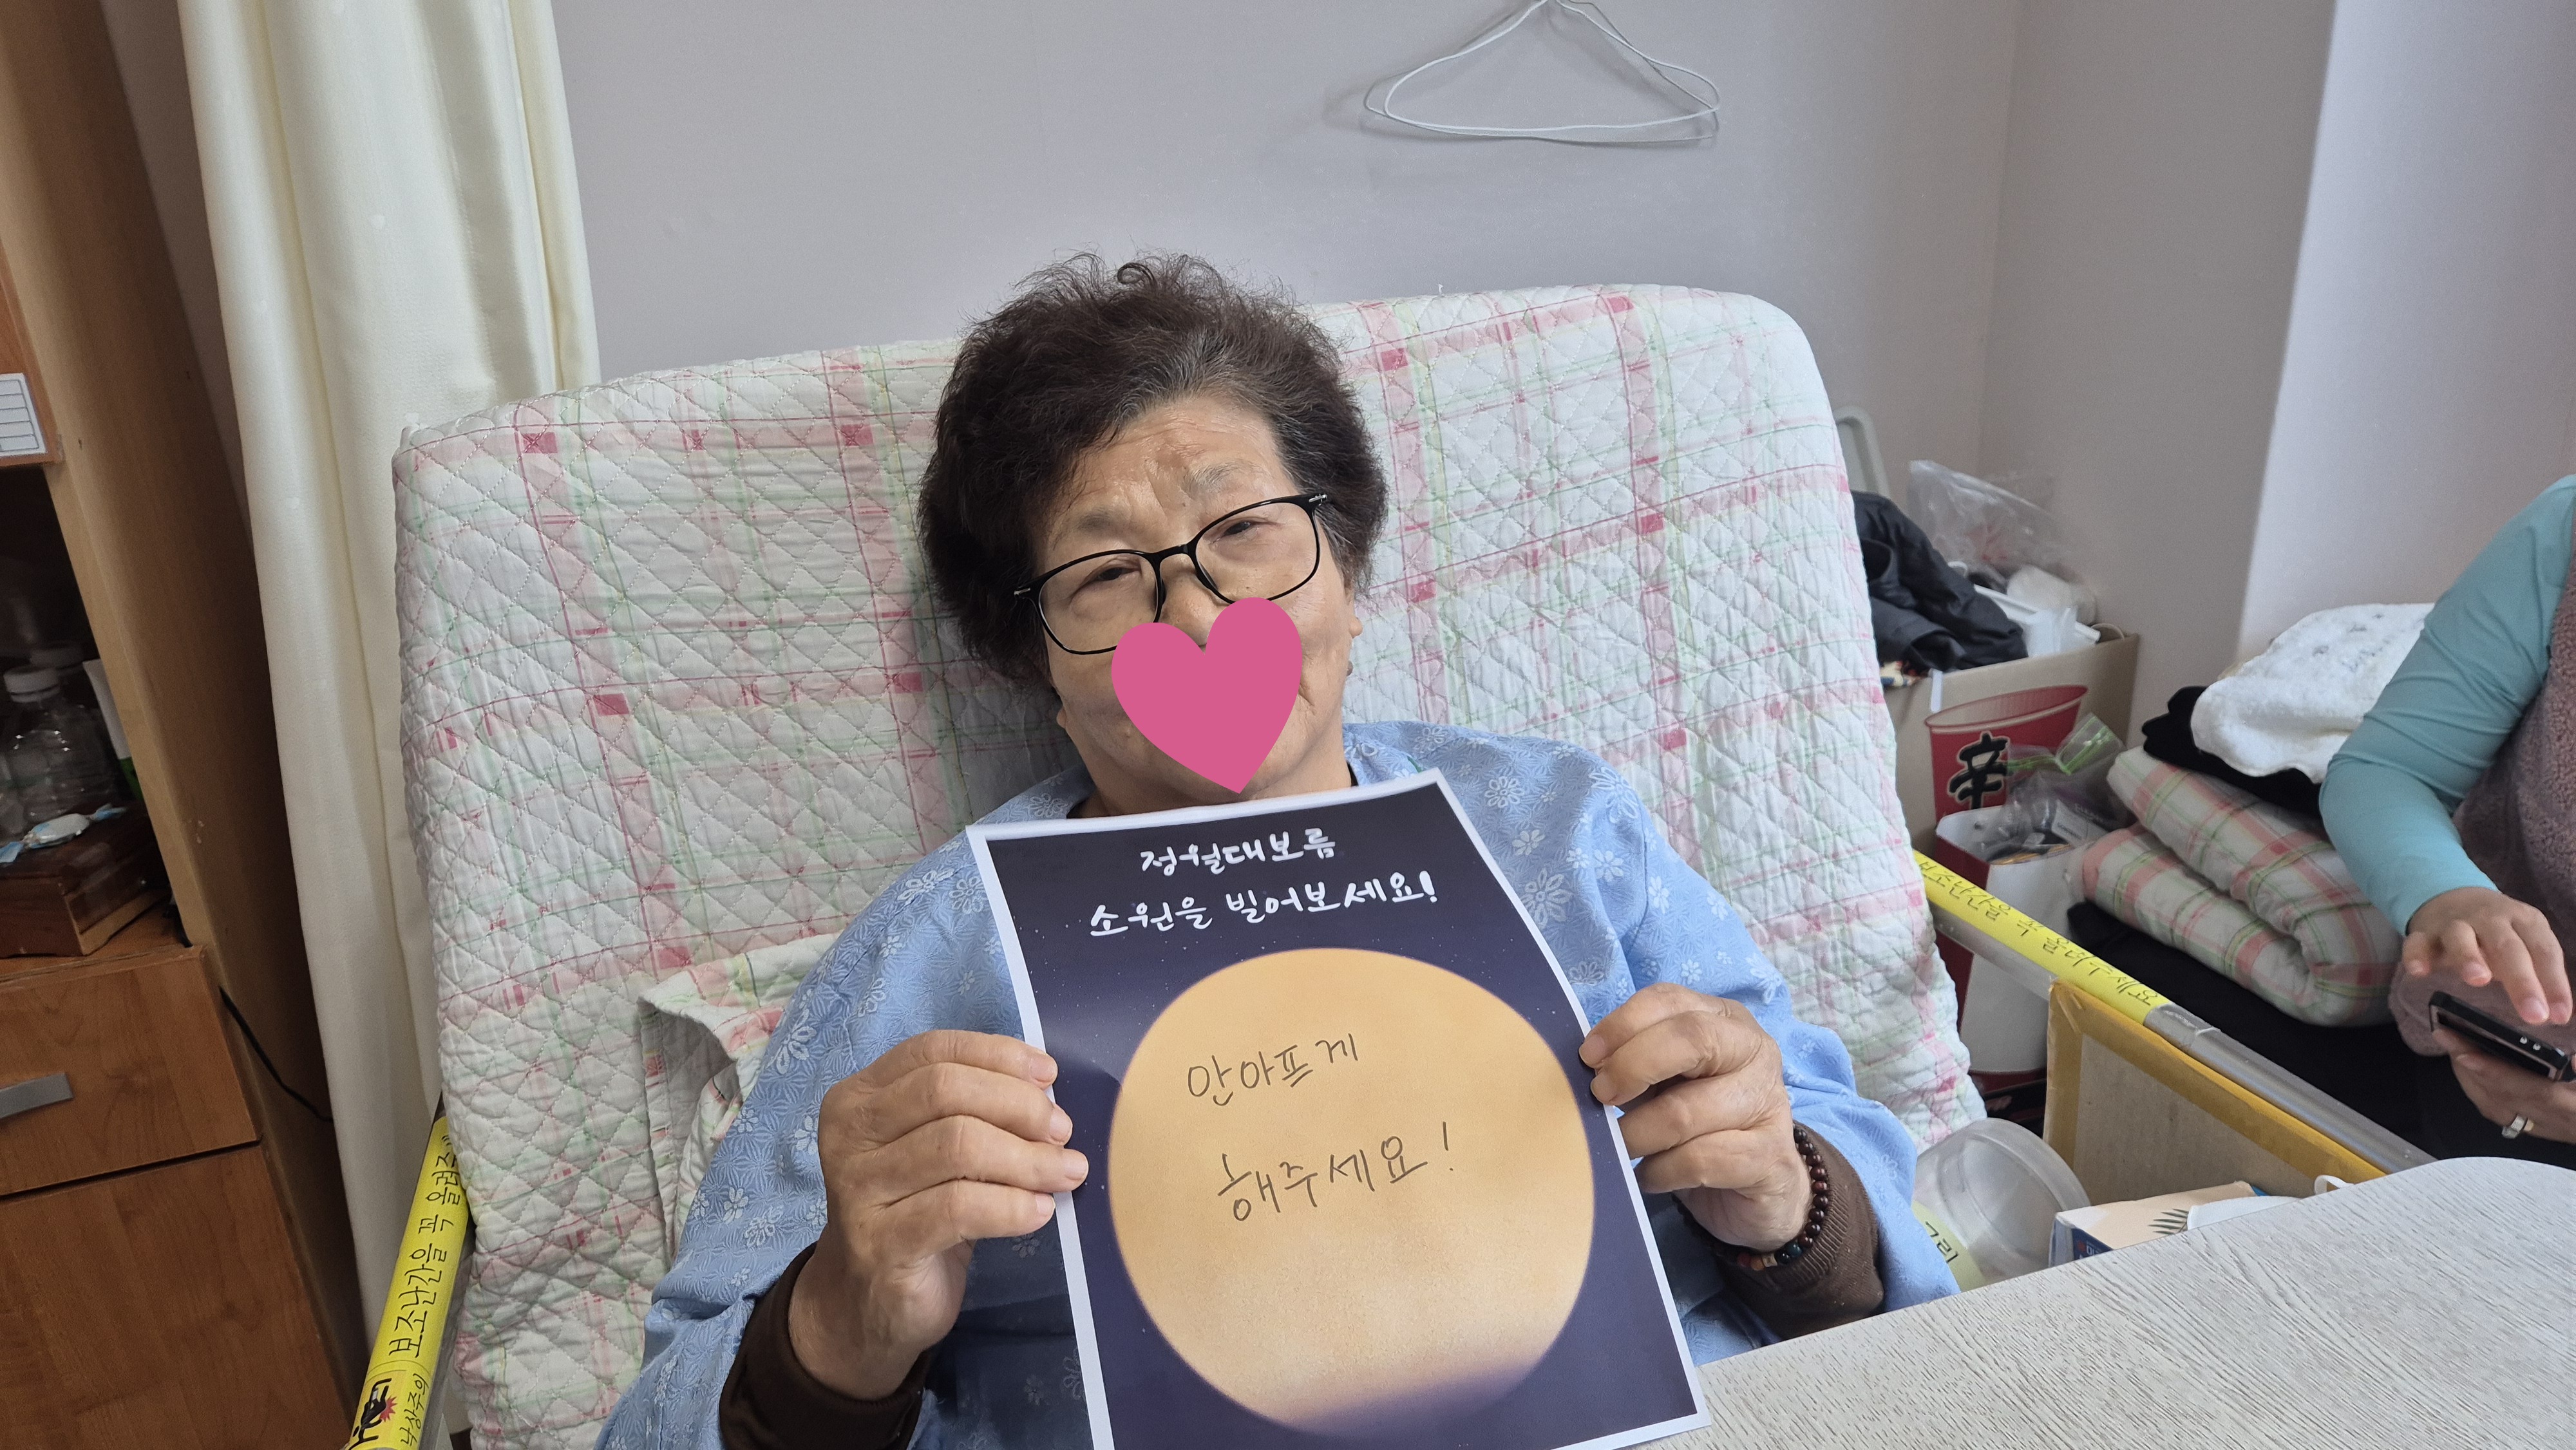 정월대보름
소원을 빌어보세요!
안아프게
해주세요!
辛
보조난간을 꼭 올려주세요
보조난간을 꼭 올려주
낙상주의